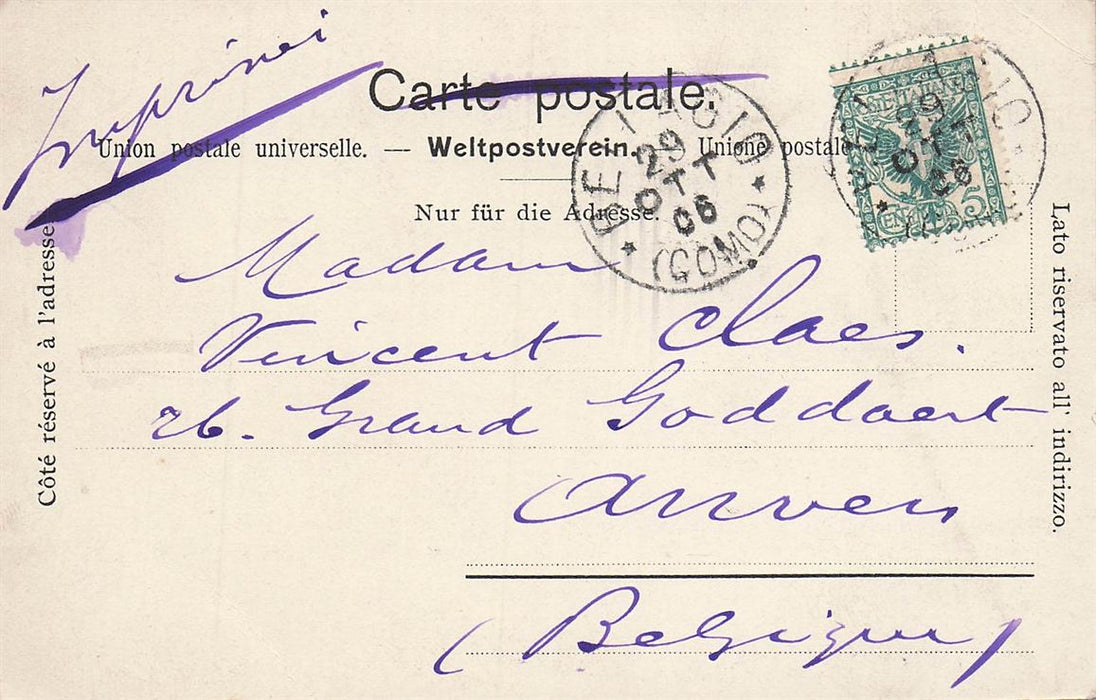 Imprimé
Carte postale.
Union postale universelle. — Weltpostverein. — Unione postale
Nur für die Adresse.
BELLAGIO
29
OTT
06
(COMO)
29
OTT
06
CENT. 5
Côté réservé à l'adresse
Lato riservato all' indirizzo.
Madam
Vincent Claes.
26. Grand Goddaert
Anvers
(Belgique)